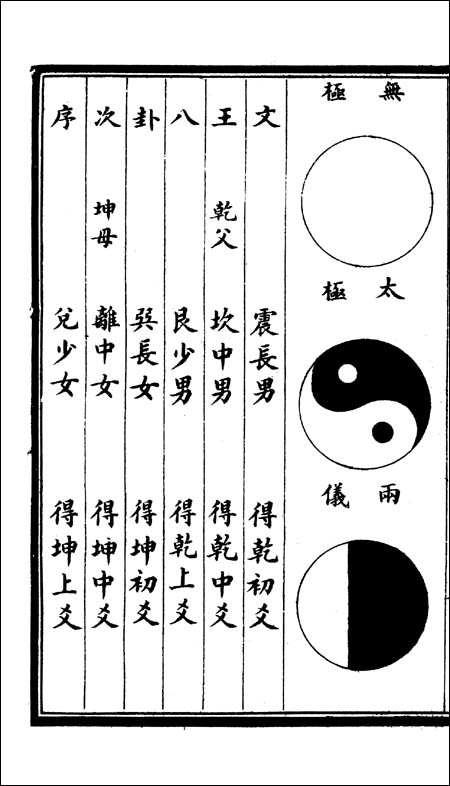 無極
太極
兩儀
文 震長男 得乾初爻
王 乾父 坎中男 得乾中爻
八 艮少男 得乾上爻
卦 巽長女 得坤初爻
次 坤母 離中女 得坤中爻
序 兌少女 得坤上爻